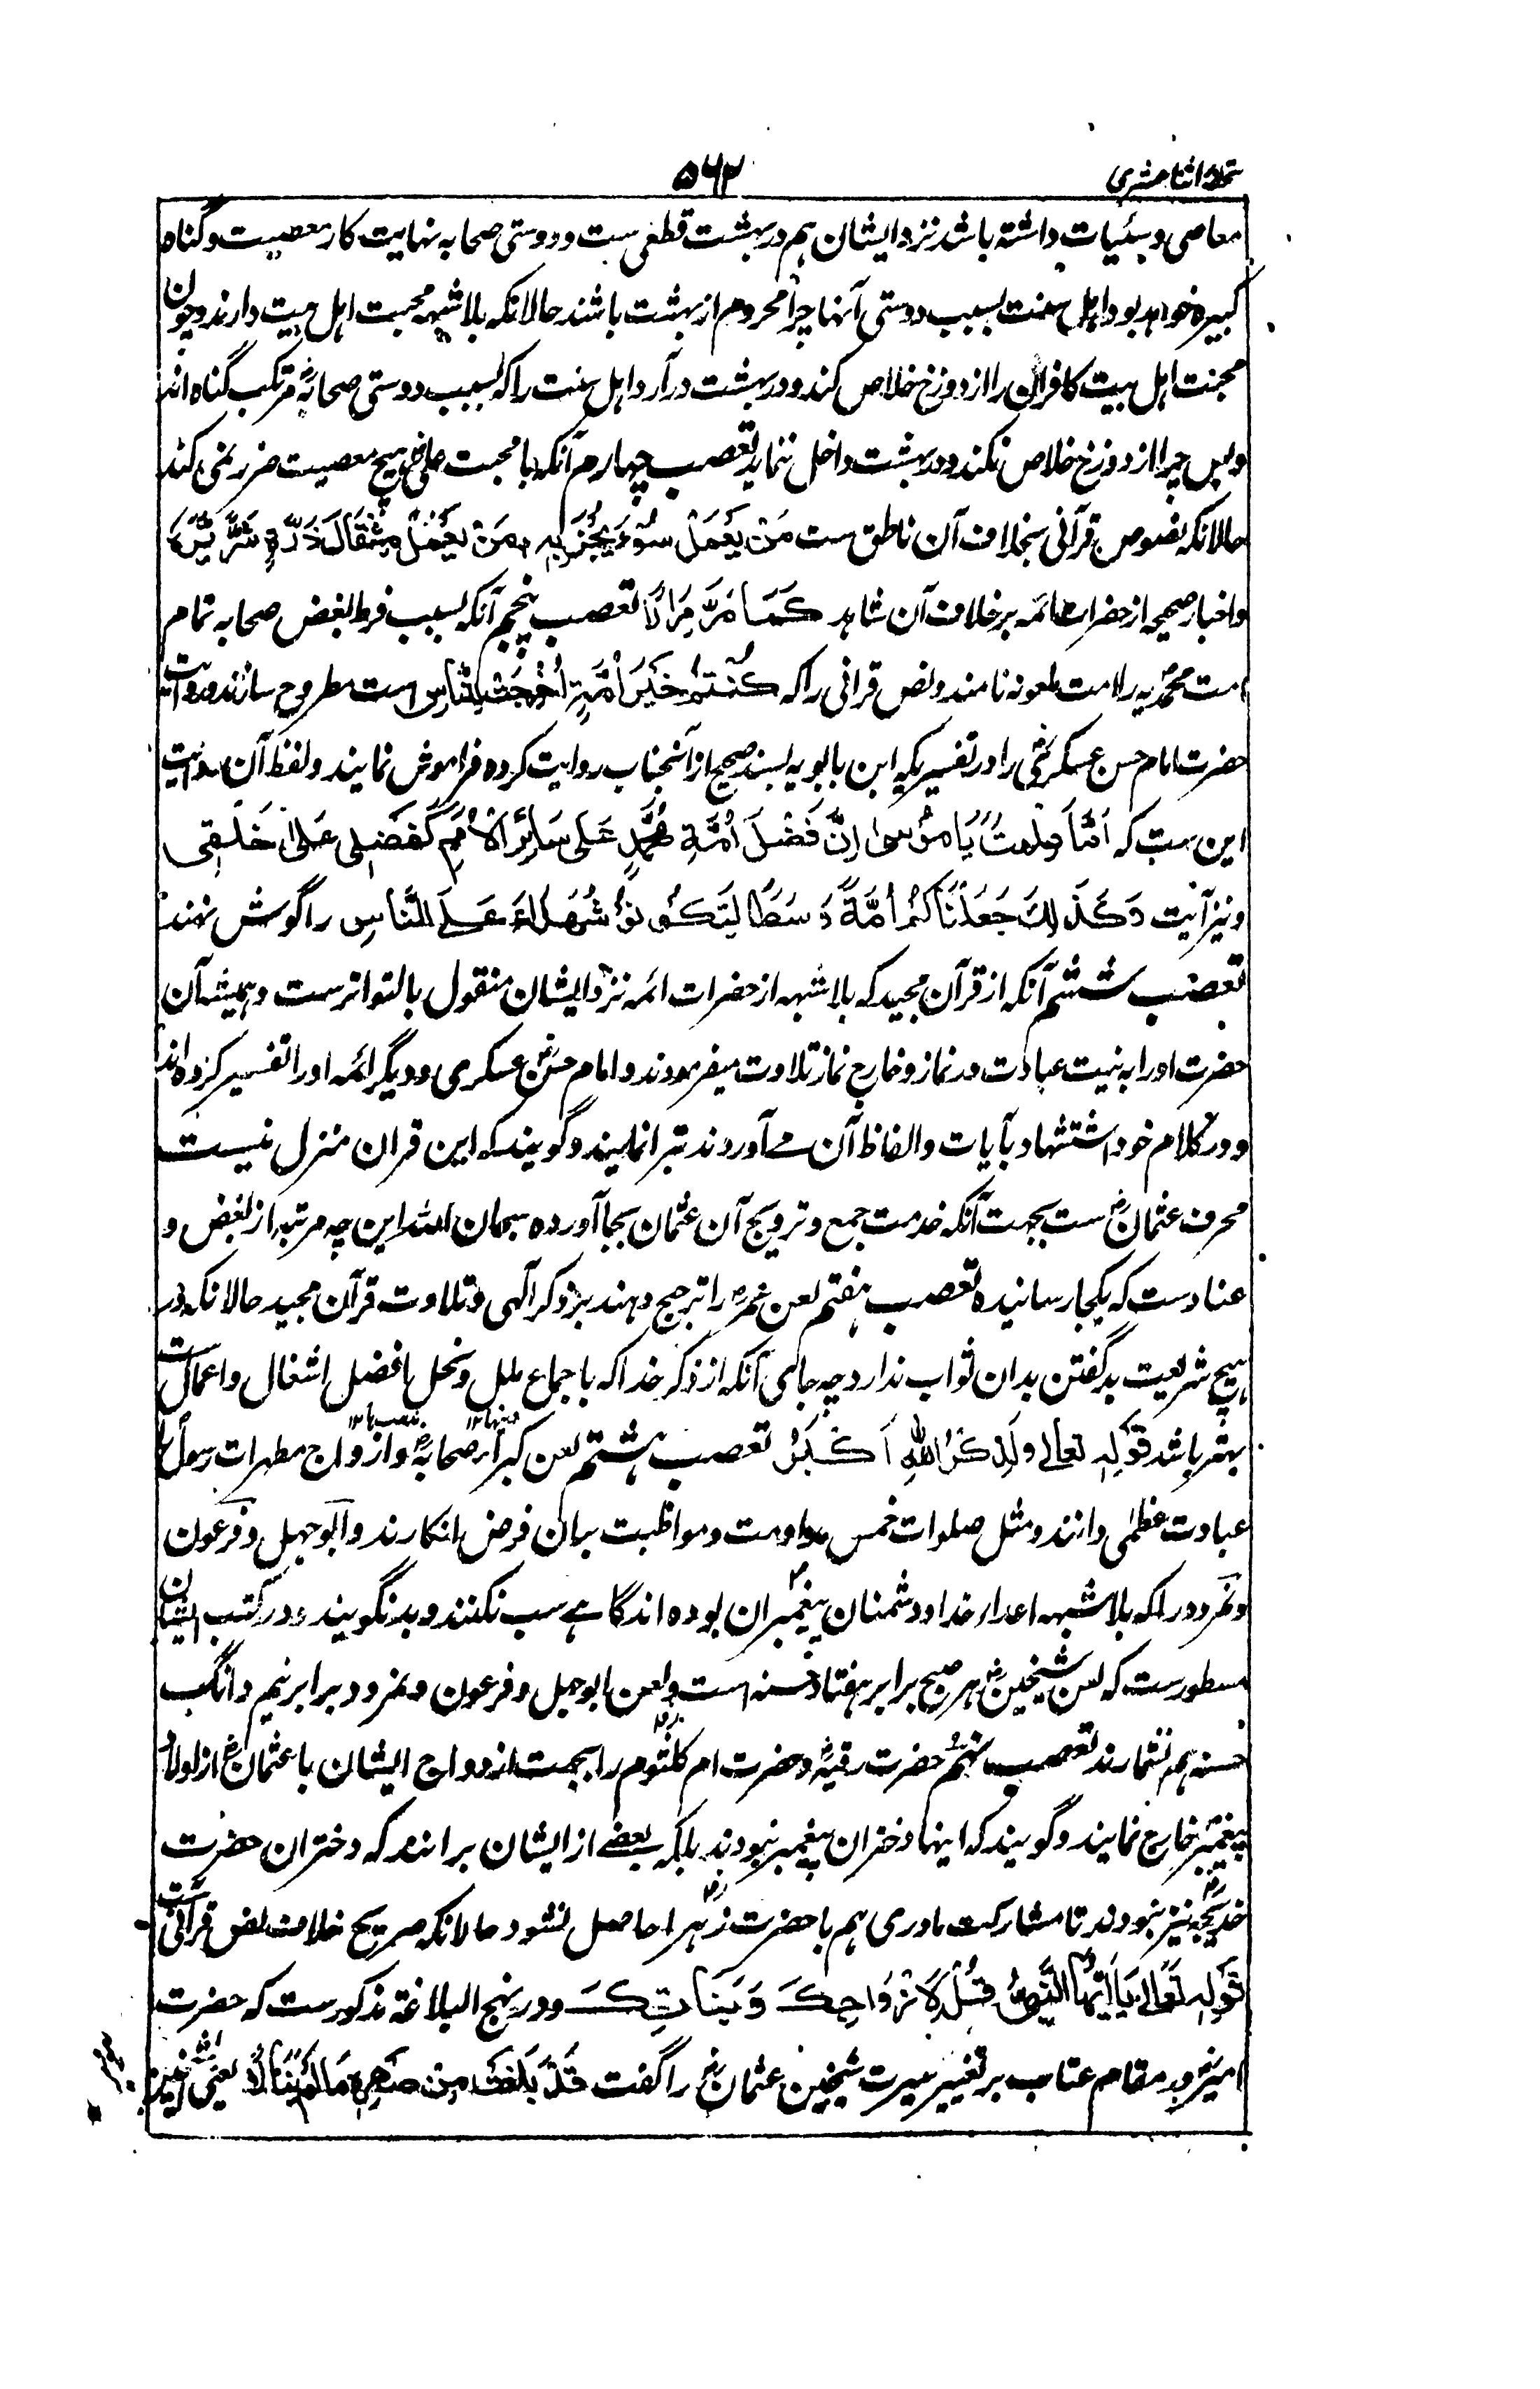 تحفهٔ اثنا عشری
۵۶۲
معاصی و سئیات داشته باشد نزد ایشان هم در بهشت قطعی ست و دوستی صحابه نهایت کار معصیت و گناه
کبیره خواهد بود اهل سنت بسبب دوستی آنها چرا محروم از بهشت باشند حالانکه بلا شبهه محبت اهل بیت دارند و چون
محبت اهل بیت کافران را از دوزخ خلاص کند و در بهشت در آرد اهل سنت را که بسبب دوستی صحابهؓ مرتکب گناه اند
و بس چرا از دوزخ خلاص نکند و در بهشت داخل ننماید تعصب چهارم آنکه با محبت علیؓ هیچ معصیت ضرر نمی کند
حالانکه نصوص قرآنی بخلاف آن ناطق ست مَنْ یَعْمَلْ سُوْءً یُجْزَ بِهٖ وَمَنْ یَعْمَلْ مِثْقَالَ ذَرَّةٍ شَرًّا یَّرَهٗ
و اخبار صحیحه از حضرات ائمه بر خلاف آن شاهد کَمَا مَرَّ مِرَارًا تعصب پنجم آنکه بسبب فرط بغض صحابه تمام
امت محمدیه را امت ملعونه نامند و نص قرانی را که کُنْتُمْ خَیْرَ اُمَّةٍ اُخْرِجَتْ لِلنَّاسِ است مطروح سازند و روایت
حضرت امام حسن عسکریؓ را در تفسیریکه ابن بابویه بسند صحیح از آنجناب روایت کرده فراموش نمایند و لفظ آن روایت
این ست که اَمَّا عَلِمْتَ یَا مُوْسٰی اِنَّ فَضْلَ اُمَّةِ مُحَمَّدٍ عَلٰی سَائِرِ الْاُمَمِ کَفَضْلِی عَلٰی خَلْقِی
و نیز آیت وَکَذٰلِكَ جَعَلْنَاکُمْ اُمَّةً وَسَطًا لِتَکُوْنُوْا شُهَدَاءَ عَلَی النَّاسِ را گوش نهند
تعصب ششم آنکه از قرآن مجید که بلا شبهه از حضرات ائمه نزد ایشان منقول بالتواتر ست و همیشه آن
حضرت او را به نیت عبادت در نماز و خارج نماز تلاوت میفرمودند و امام حسنؓ عسکری و دیگر ائمه او را تفسیر کرده اند
و در کلام خود استشهاد بآیات و الفاظ آن مے آوردند تبرا نمایند و گویند که این قران منزل نیست
محرف عثمانؓ ست بجهت آنکه خدمت جمع و ترویج آن عثمان بجا آورده سبحان الله این چه مرتبه از بغض و
عناد ست که بکجا رسانیده تعصب هفتم لعن عمرؓ را ترجیح دهند بر ذکر الهی و تلاوت قرآن مجید حالانکه در
هیچ شریعت بد گفتن بدان ثواب ندارد چه جای آنکه از ذکر خدا که باجماع ملل و نحل افضل اشغال و اعمال ست
بهتر باشد قوله تعالی وَلَذِکْرُ اللّٰهِ اَکْبَرُ تعصب هشتم لعن کبرار صحابهؓ و ازواج مطهرات رسول را
عبادت عظمی دانند و مثل صلوات خمس مداومت و مواظبت بران فرض انکارند و ابو جهل و فرعون
و نمرود را که بلا شبهه اعداء خدا و دشمنان پیغمبران بوده اند گاهے سب نکنند و بد نگویند و در کتب ایشان
مسطور ست که لعن شیخینؓ هر صبح برابر هفتاد حسنه است و لعن ابو جهل و فرعون و نمرود برابر نیم دانگ
حسنه هم نشمارند تعصب نهم حضرت رقیهؓ و حضرت ام کلثوم را بجهت ازدواج ایشان با عثمانؓ از اولاد
پیغمبر خارج نمایند و گویند که اینها دختران پیغمبر نبودند بلکه بعضے از ایشان بر انند که دختران حضرت
خدیجه نیز نبودند تا مشارکت مادری هم با حضرت زهرا حاصل نشود حالانکه صریح خلاف نص قرآنی ست
قوله تعالی یَا اَیُّهَا النَّبِیُّ قُلْ لِاَزْوَاجِكَ وَبَنَاتِكَ و در نهج البلاغة مذکور ست که حضرت
امیرؓ در مقام عتاب بر تغییر سیرت شیخین عثمانؓ را گفت قَدْ بَلَغْتَ مِنْ صَهْرِهٖ مَا لَمْ یَنَالَا یعنی